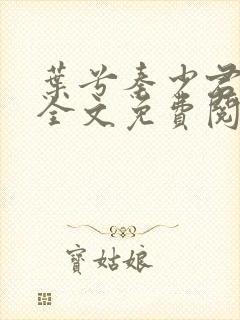 葉兮秦少君
全文免費閱
寶姑娘